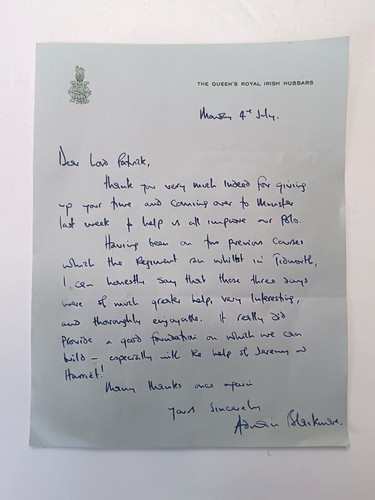 THE QUEEN'S ROYAL IRISH HUSSARS
Monday 4th July.
Dear Lord Patrick,
Thank you very much indeed for giving
up your time and coming over to Munster
last week to help us all improve our Polo.
Having been on two previous courses
which the Regiment ran whilst in Tidworth,
I can honestly say that those three days
were of much greater help, very interesting,
and thoroughly enjoyable. It really did
provide a good foundation on which we can
build - especially with the help of Jeremy and
Harriet!
Many thanks once again
Yours Sincerely
Blackmore.